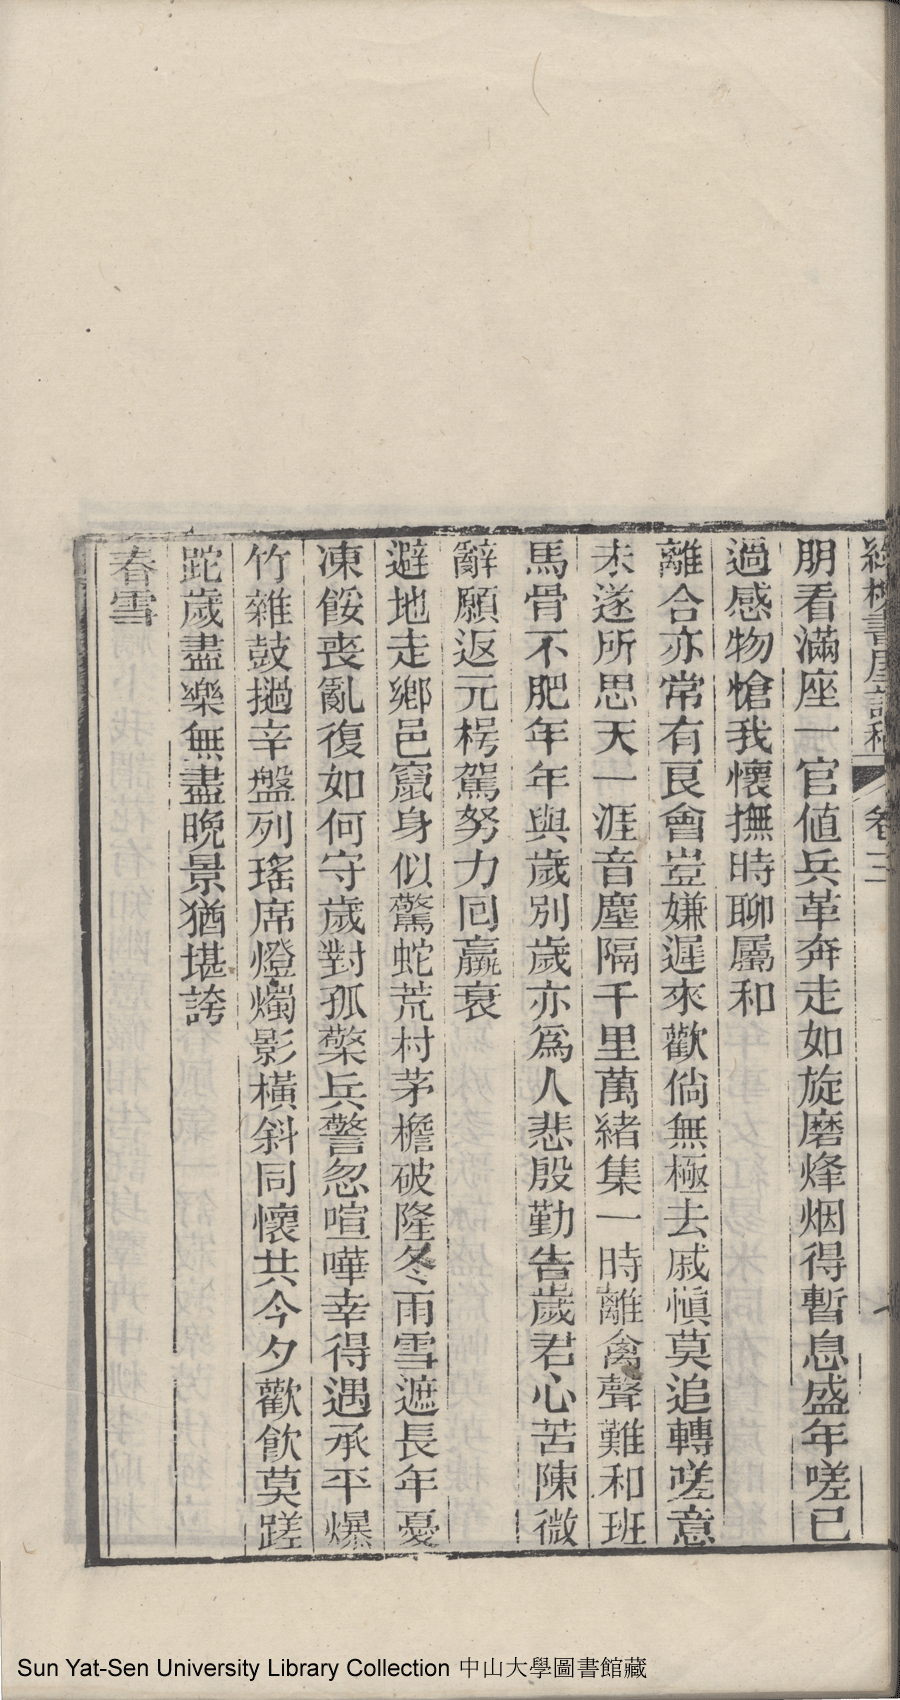 綠榕書屋詩稿 卷三
朋看滿座一官值兵革奔走如旋磨烽烟得暫息盛年嗟已
過感物愴我懷撫時聊屬和
離合亦常有良會豈嫌遲來歡倘無極去戚愼莫追轉嗟意
未遂所思天一涯音塵隔千里萬緒集一時離禽聲難和班
馬骨不肥年年與歲別歲亦爲人悲殷勤告歲君心苦陳微
辭願返元枵駕努力囘羸衰
避地走鄉邑竄身似驚蛇荒村茅檐破隆冬雨雪遮長年憂
凍餒喪亂復如何守歲對孤檠兵警忽喧嘩幸得遇承平爆
竹雜鼓撾辛盤列瑤席燈燭影橫斜同懷共今夕歡飮莫蹉
跎歲盡樂無盡晩景猶堪誇
春雪
Sun Yat-Sen University Library Collection 中山大學圖書館藏